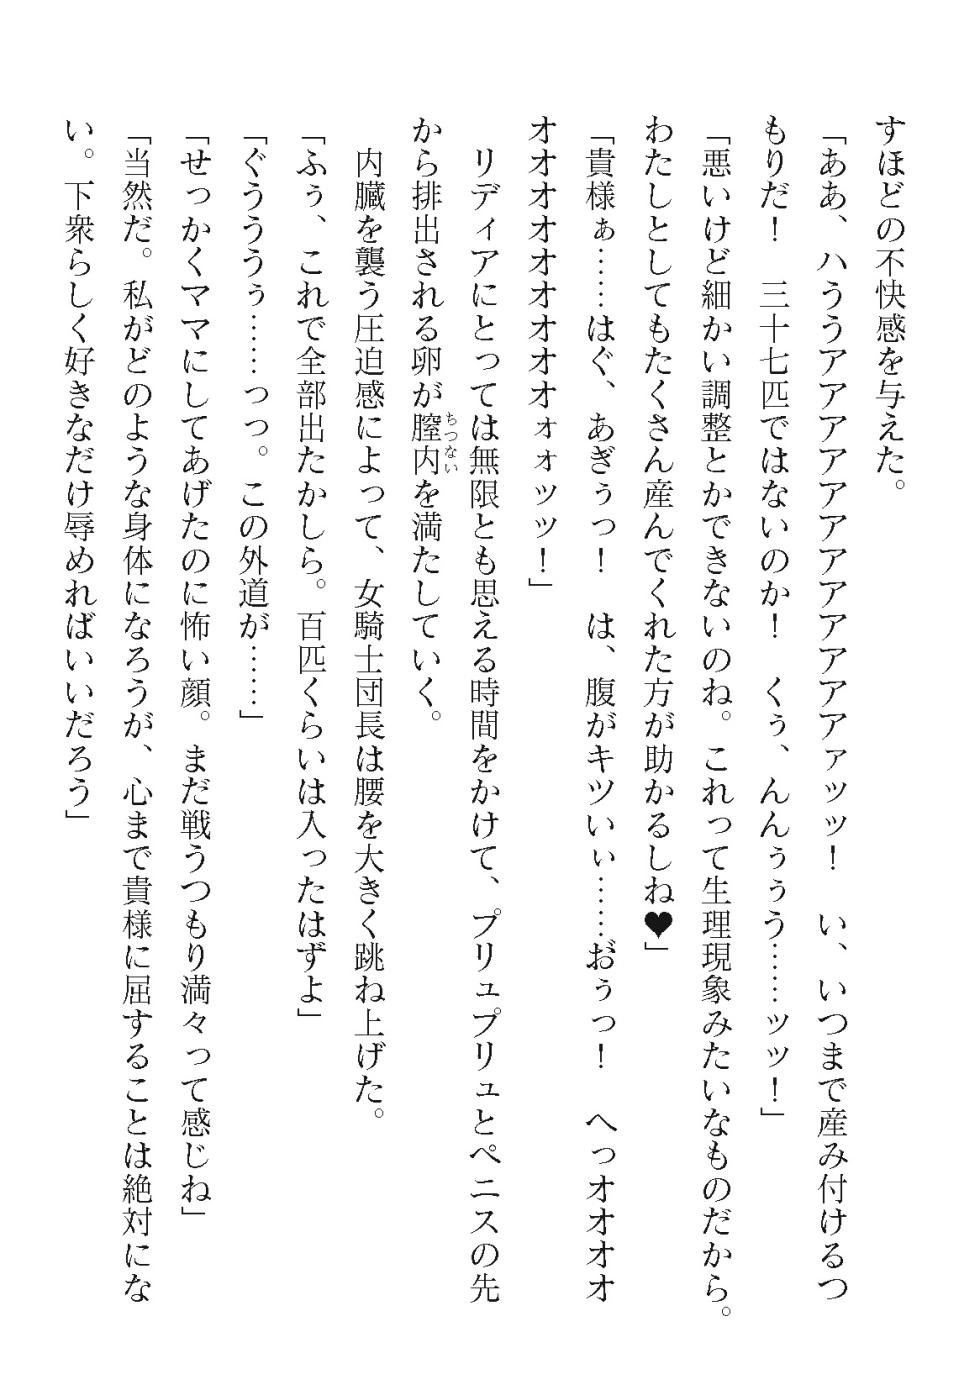 すほどの不快感を与えた。
「ああ、ハううアアアアアアアアアアァッッ！　い、いつまで産み付けるつ
もりだ！　三十七匹ではないのか！　くぅ、んんぅぅう……ッッ！」
「悪いけど細かい調整とかできないのね。これって生理現象みたいなものだから。
わたしとしてもたくさん産んでくれた方が助かるしね♥」
「貴様ぁ……はぐ、あぎぅっ！　は、腹がキツいぃ……お゛ぅっ！　へっオオオオ
オオオオオオオオオォォッッ！」
　リディアにとっては無限とも思える時間をかけて、プリュプリュとペニスの先
から排出される卵が膣内を満たしていく。
　内臓を襲う圧迫感によって、女騎士団長は腰を大きく跳ね上げた。
「ふぅ、これで全部出たかしら。百匹くらいは入ったはずよ」
「ぐうううぅ……っっ。この外道が……」
「せっかくママにしてあげたのに怖い顔。まだ戦うつもり満々って感じね」
「当然だ。私がどのような身体になろうが、心まで貴様に屈することは絶対にな
い。下衆らしく好きなだけ辱めればいいだろう」